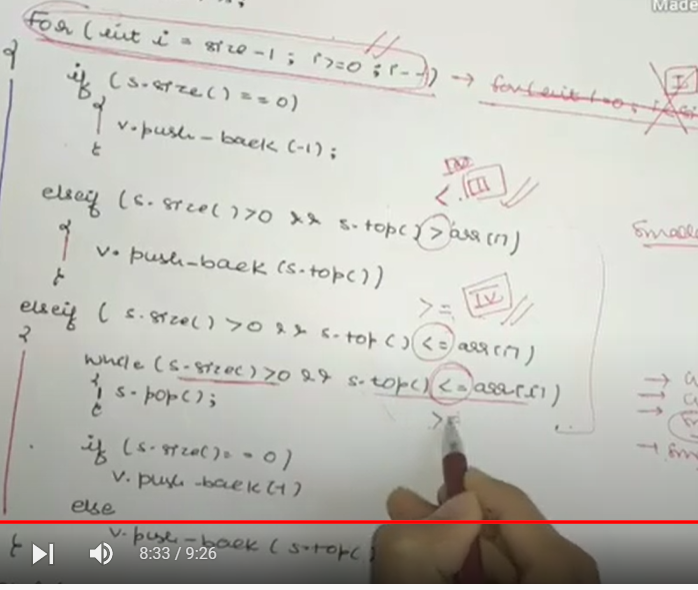 Made
For (int i = size-1 ; i>=0 ; i--) → for(int i=0; i
I
if (s.size() ==0)
{
v.push-back (-1);
}
< . III
elseif (s.size()>0 && s.top() > arr[i])
Smalle
{
v. push-back (s.top())
}
>= IV
elseif ( s.size() >0 && s.top() <= arr[i])
{
while (s.size()>0 && s.top() <= arr[i])
{
s.pop();
}
>=
if (s.size()== 0)
v.push-back(-1)
else
v.push-back ( s.top()
}
8:33 / 9:26